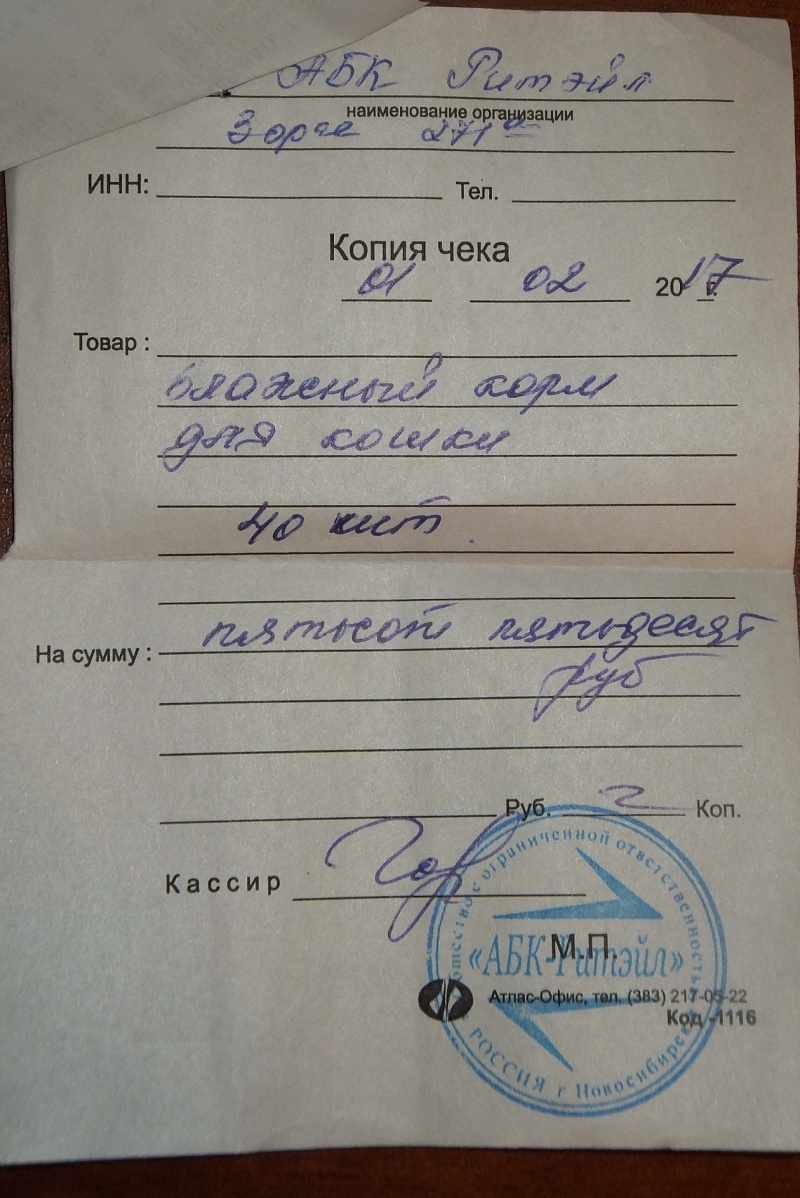 АБК Ритэйл
наименование организации
Зорге 271а
ИНН: Тел.
Копия чека
01 02 2017 г.
Товар :
влажный корм
для кошки
40 шт.
На сумму : пятьсот пятьдесят
руб
Руб. Коп.
Кассир
М.П.
Общество с ограниченной ответственностью
«АБК-Ритэйл»
РОССИЯ г Новосибирск
Атлас-Офис, тел. (383) 217-05-22
Код -1116